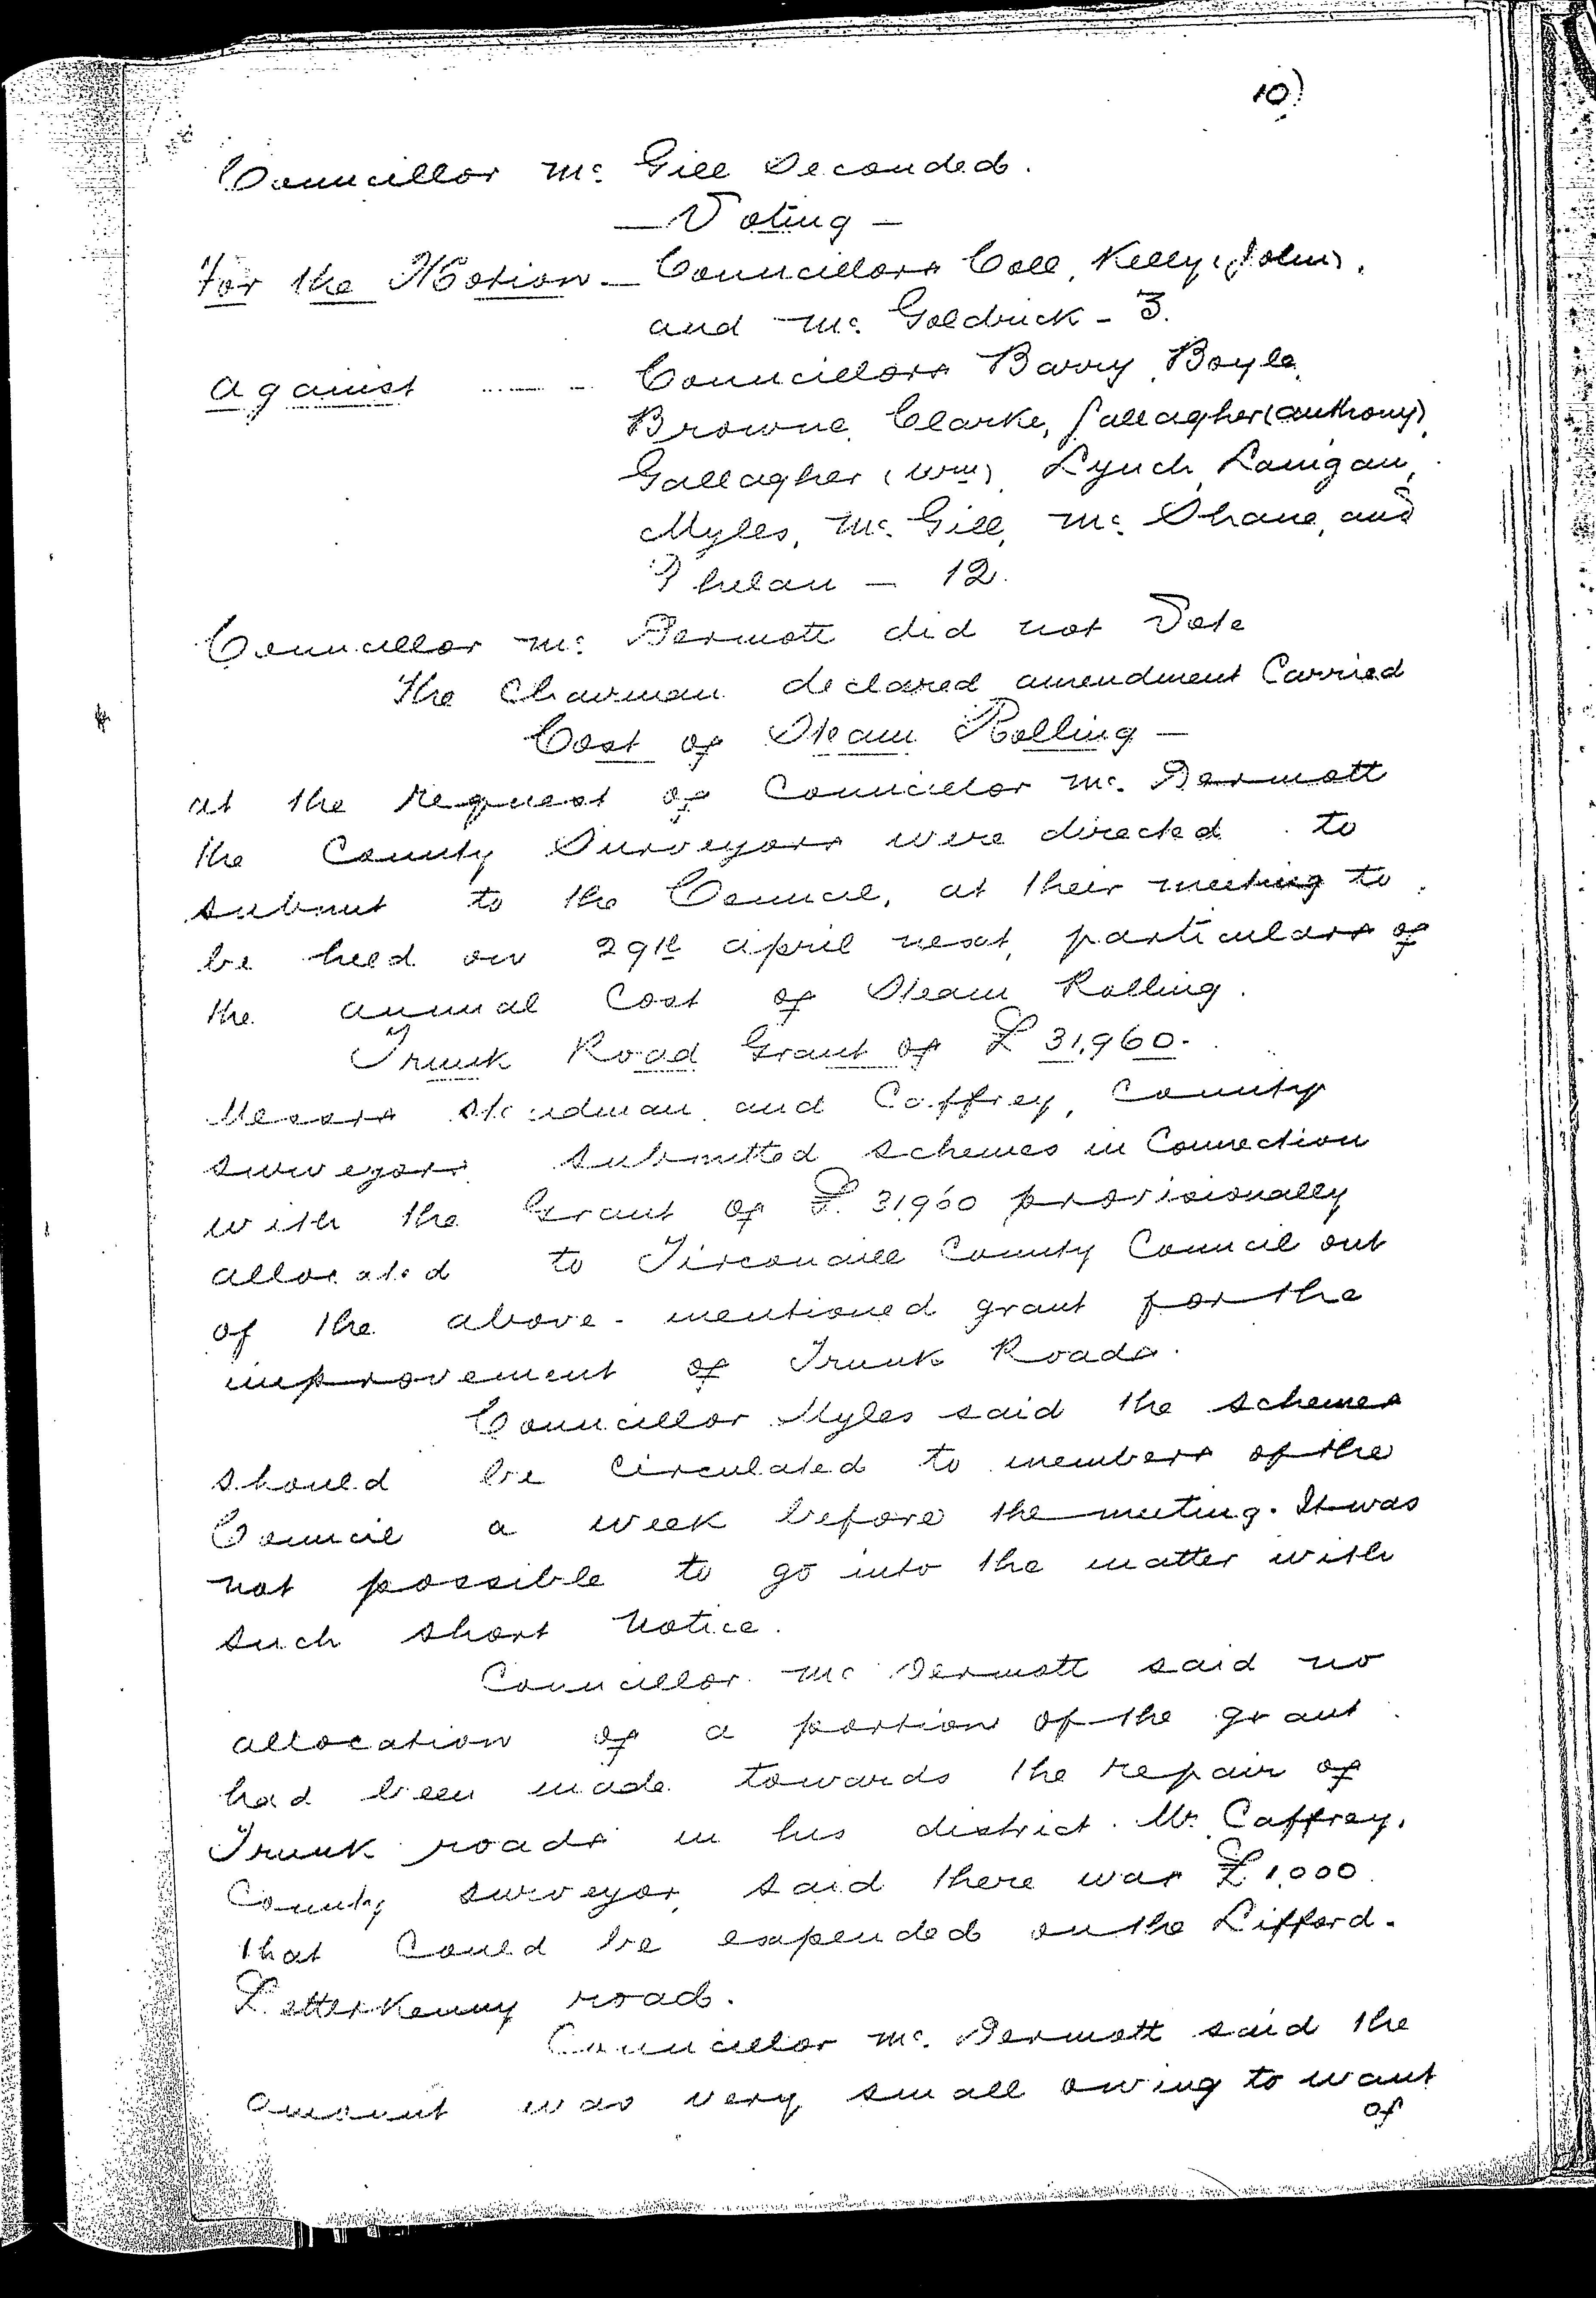 10)
Councillor Mc. Gill Seconded.
— Voting —
For the Motion — Councillors Coll, Kelly (John),
and Mc. Goldrick - 3.
Against ...... - Councillors Barry, Boyle,
Browne, Clarke, Gallagher (Anthony),
Gallagher (Wm), Lynch, Lanigan,
Myles, Mc. Gill, Mc. Shane, and
Phelan — 12.
Councillor Mc. Dermott did not Vote
The Chairman declared amendment Carried
Cost of Steam Rolling —
at the request of Councillor Mc. Dermott
the County Surveyors were directed to
submit to the Council, at their meeting to
be held on 29th April next, particulars of
the annual Cost of Steam Rolling.
Trunk Road Grant of £31,960.
Messrs Steadman and Caffrey, County
surveyors submitted schemes in Connection
with the Grant of £31,960 provisionally
allocated to Tirconaill County Council out
of the above-mentioned grant for the
improvement of Trunk Roads.
Councillor Myles said the schemes
should be circulated to members of the
Council a week before the meeting. It was
not possible to go into the matter with
such short Notice.
Councillor Mc Dermott said no
allocation of a portion of the grant
had been made towards the repair of
Trunk roads in his district. Mr. Caffrey,
County surveyor, said there was £1,000
that Could be expended on the Lifford-
Letterkenny road.
Councillor Mc. Dermott said the
amount was very small owing to want
of